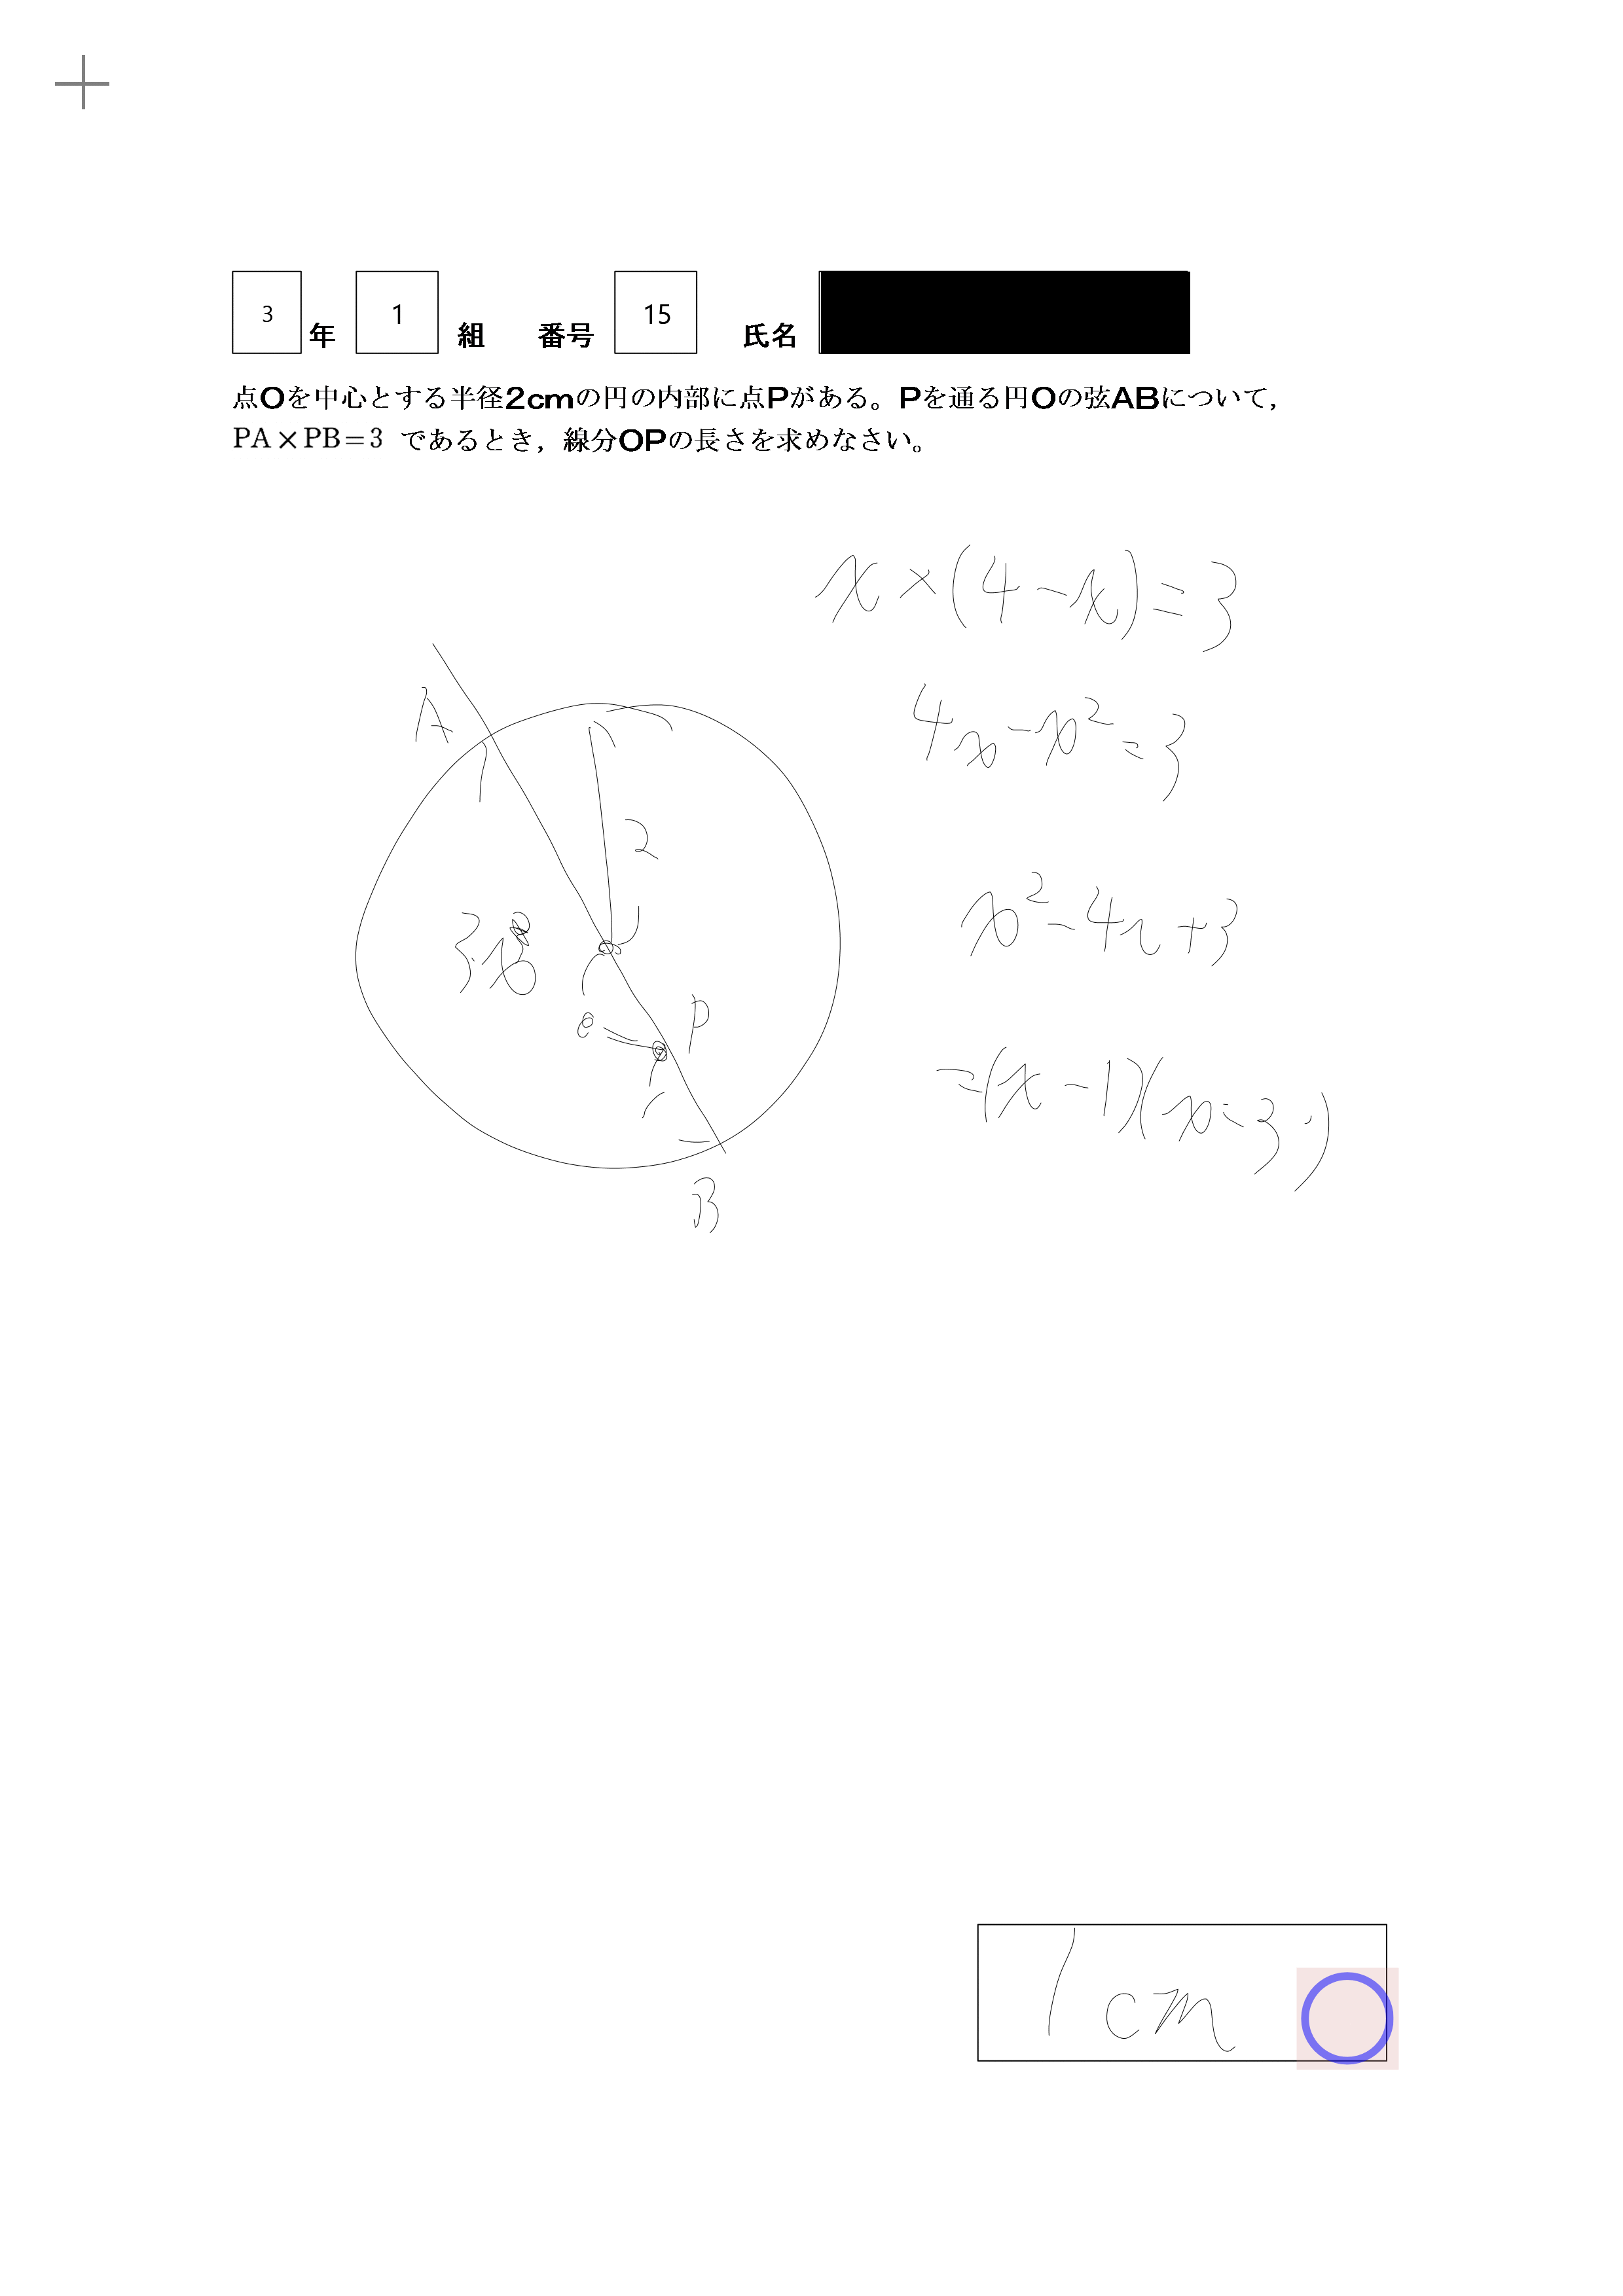 3 年 1 組 番号 15 氏名
点Oを中心とする半径2cmの円の内部に点Pがある。Pを通る円Oの弦ABについて,
PA×PB=3 であるとき, 線分OPの長さを求めなさい。
x×(4-x)=3
4x-x²=3
x²-4x+3
=(x-1)(x-3)
A
2
P
B
1cm